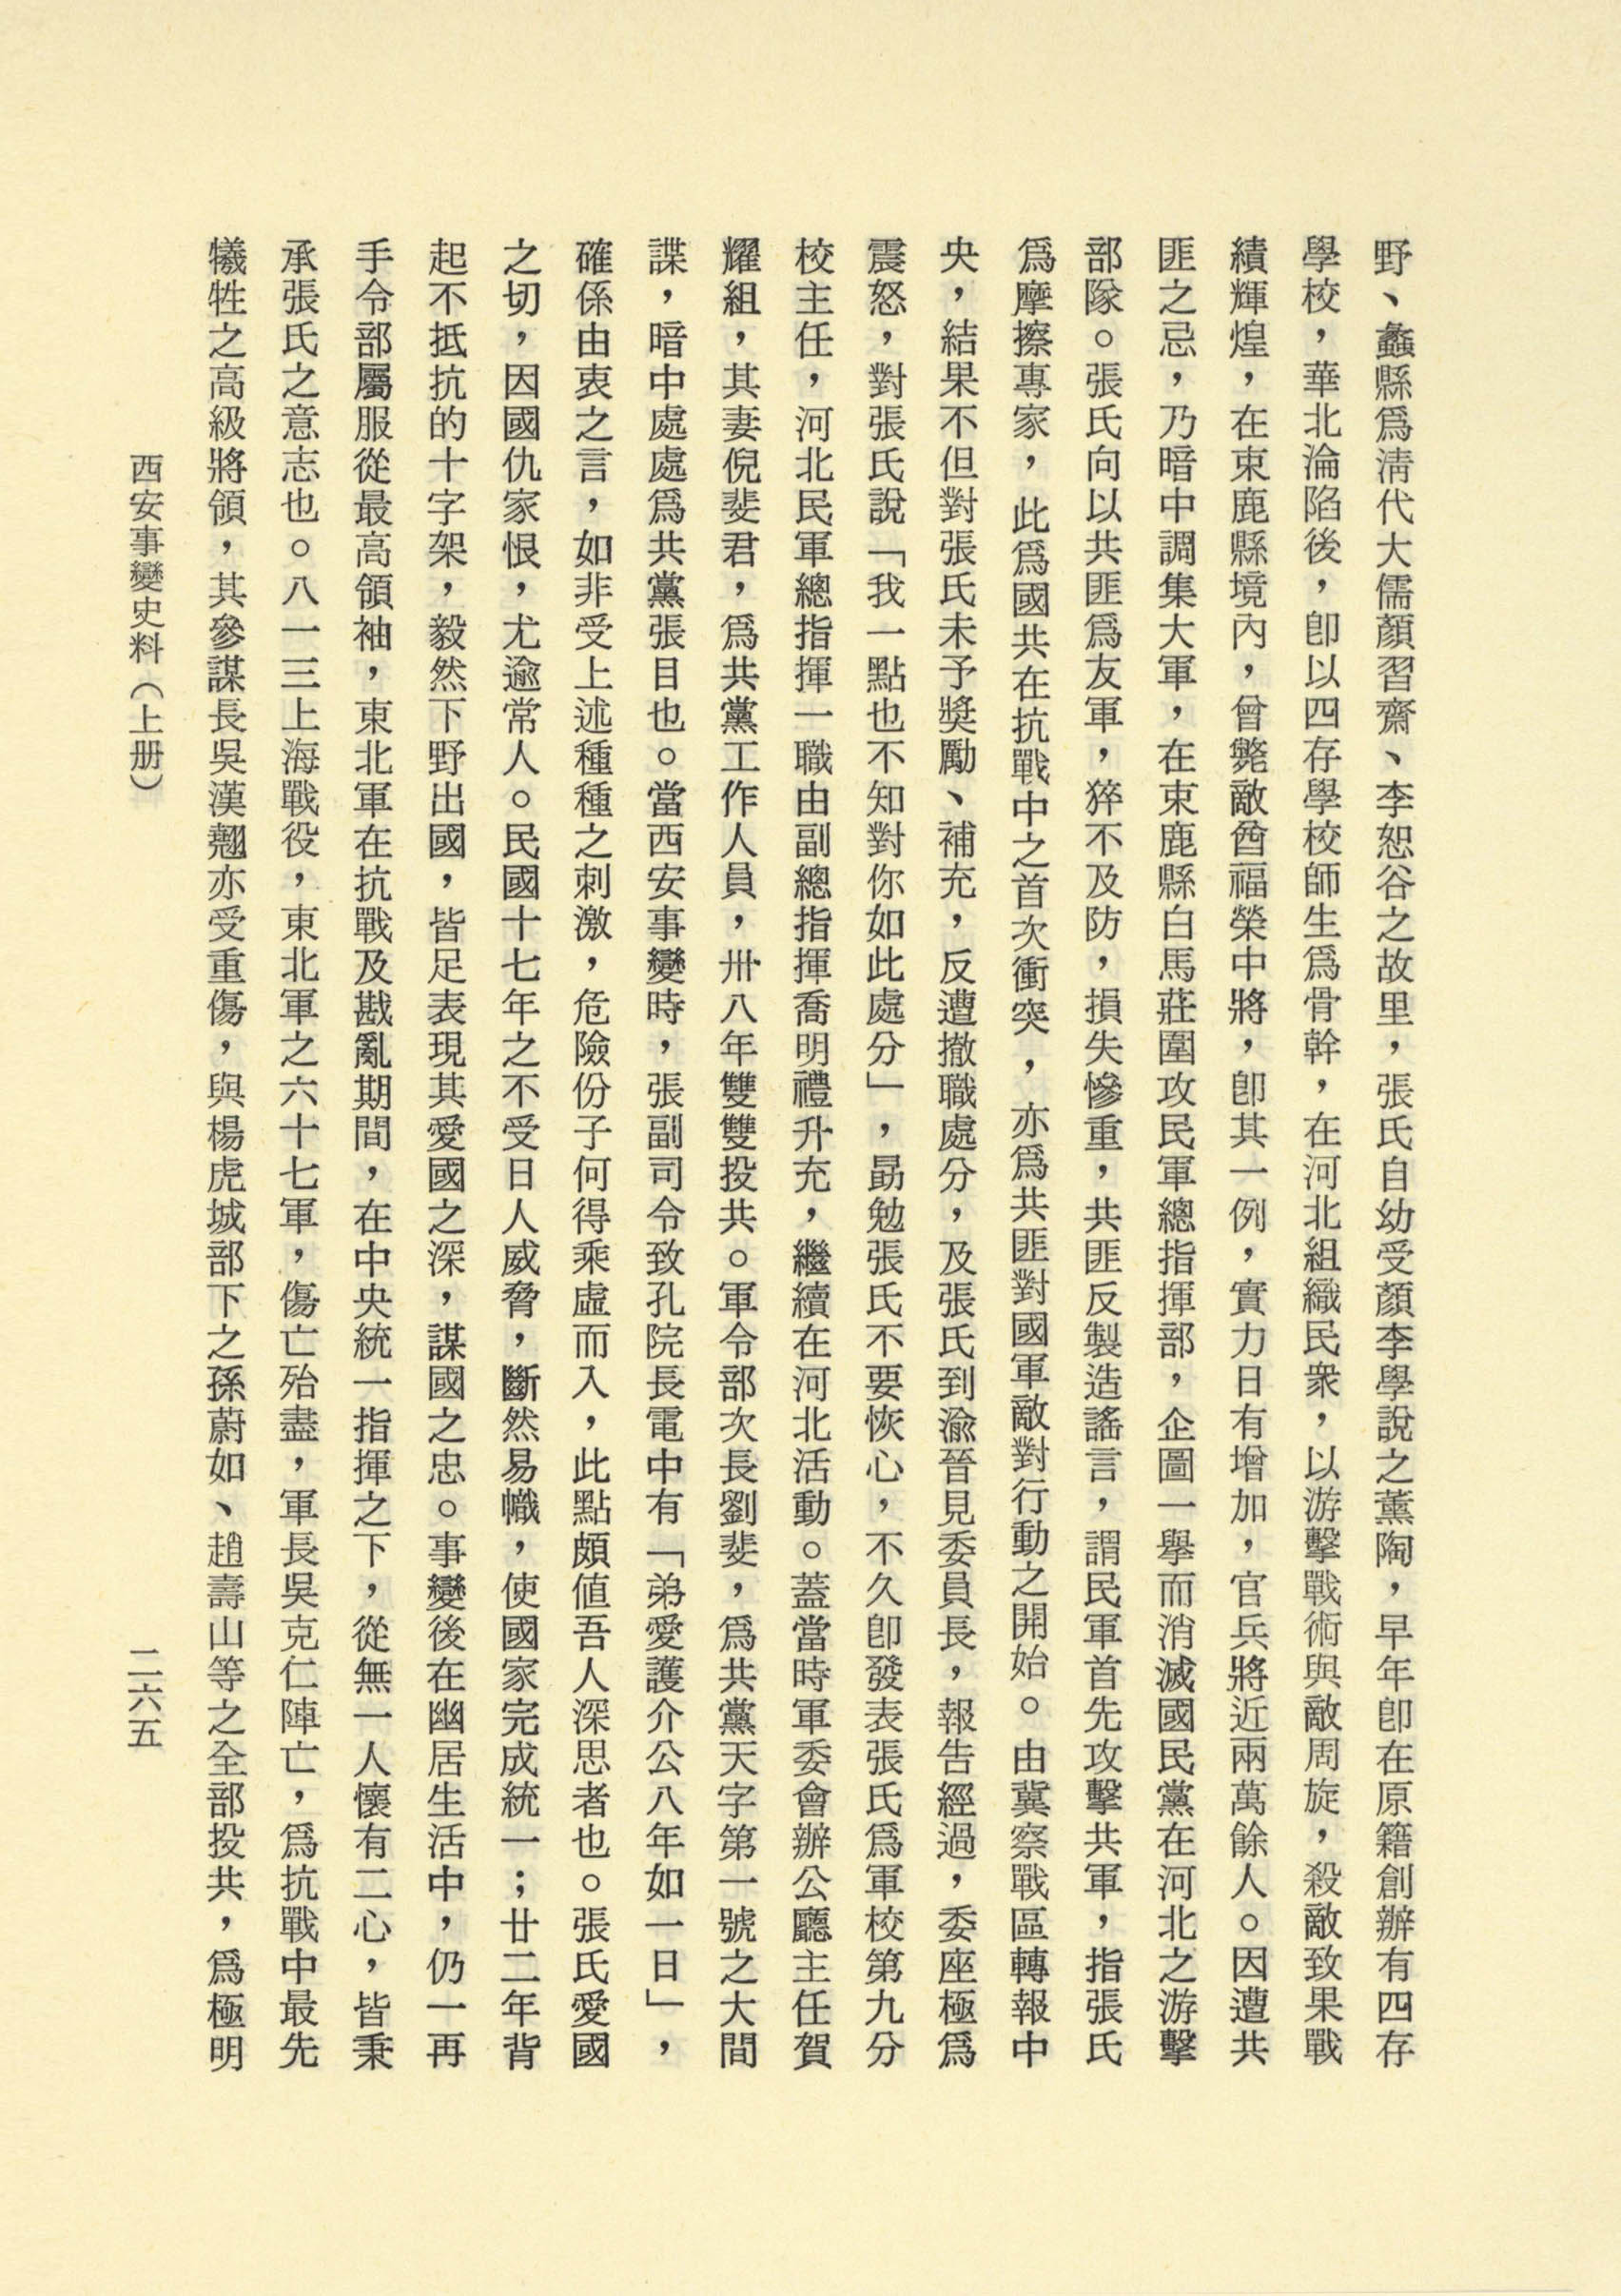 野、蠡縣爲淸代大儒顏習齋、李恕谷之故里，張氏自幼受顏李學說之薰陶，早年卽在原籍創辦有四存
學校，華北淪陷後，卽以四存學校師生爲骨幹，在河北組織民衆，以游擊戰術與敵周旋，殺敵致果戰
績輝煌，在束鹿縣境內，曾斃敵酋福榮中將，卽其一例，實力日有增加，官兵將近兩萬餘人。因遭共
匪之忌，乃暗中調集大軍，在束鹿縣白馬莊圍攻民軍總指揮部，企圖一舉而消滅國民黨在河北之游擊
部隊。張氏向以共匪爲友軍，猝不及防，損失慘重，共匪反製造謠言，謂民軍首先攻擊共軍，指張氏
爲摩擦專家，此爲國共在抗戰中之首次衝突，亦爲共匪對國軍敵對行動之開始。由冀察戰區轉報中
央，結果不但對張氏未予獎勵、補充，反遭撤職處分，及張氏到渝晉見委員長，報告經過，委座極爲
震怒，對張氏說「我一點也不知對你如此處分」，勗勉張氏不要恢心，不久卽發表張氏爲軍校第九分
校主任，河北民軍總指揮一職由副總指揮喬明禮升充，繼續在河北活動。蓋當時軍委會辦公廳主任賀
耀組，其妻倪斐君，爲共黨工作人員，卅八年雙雙投共。軍令部次長劉斐，爲共黨天字第一號之大間
諜，暗中處處爲共黨張目也。當西安事變時，張副司令致孔院長電中有「弟愛護介公八年如一日」，
確係由衷之言，如非受上述種種之刺激，危險份子何得乘虛而入，此點頗值吾人深思者也。張氏愛國
之切，因國仇家恨，尤逾常人。民國十七年之不受日人威脅，斷然易幟，使國家完成統一；廿二年背
起不抵抗的十字架，毅然下野出國，皆足表現其愛國之深，謀國之忠。事變後在幽居生活中，仍一再
手令部屬服從最高領袖，東北軍在抗戰及戡亂期間，在中央統一指揮之下，從無一人懷有二心，皆秉
承張氏之意志也。八一三上海戰役，東北軍之六十七軍，傷亡殆盡，軍長吳克仁陣亡，爲抗戰中最先
犧牲之高級將領，其參謀長吳漢翹亦受重傷，與楊虎城部下之孫蔚如、趙壽山等之全部投共，爲極明
西安事變史料（上册）
二六五